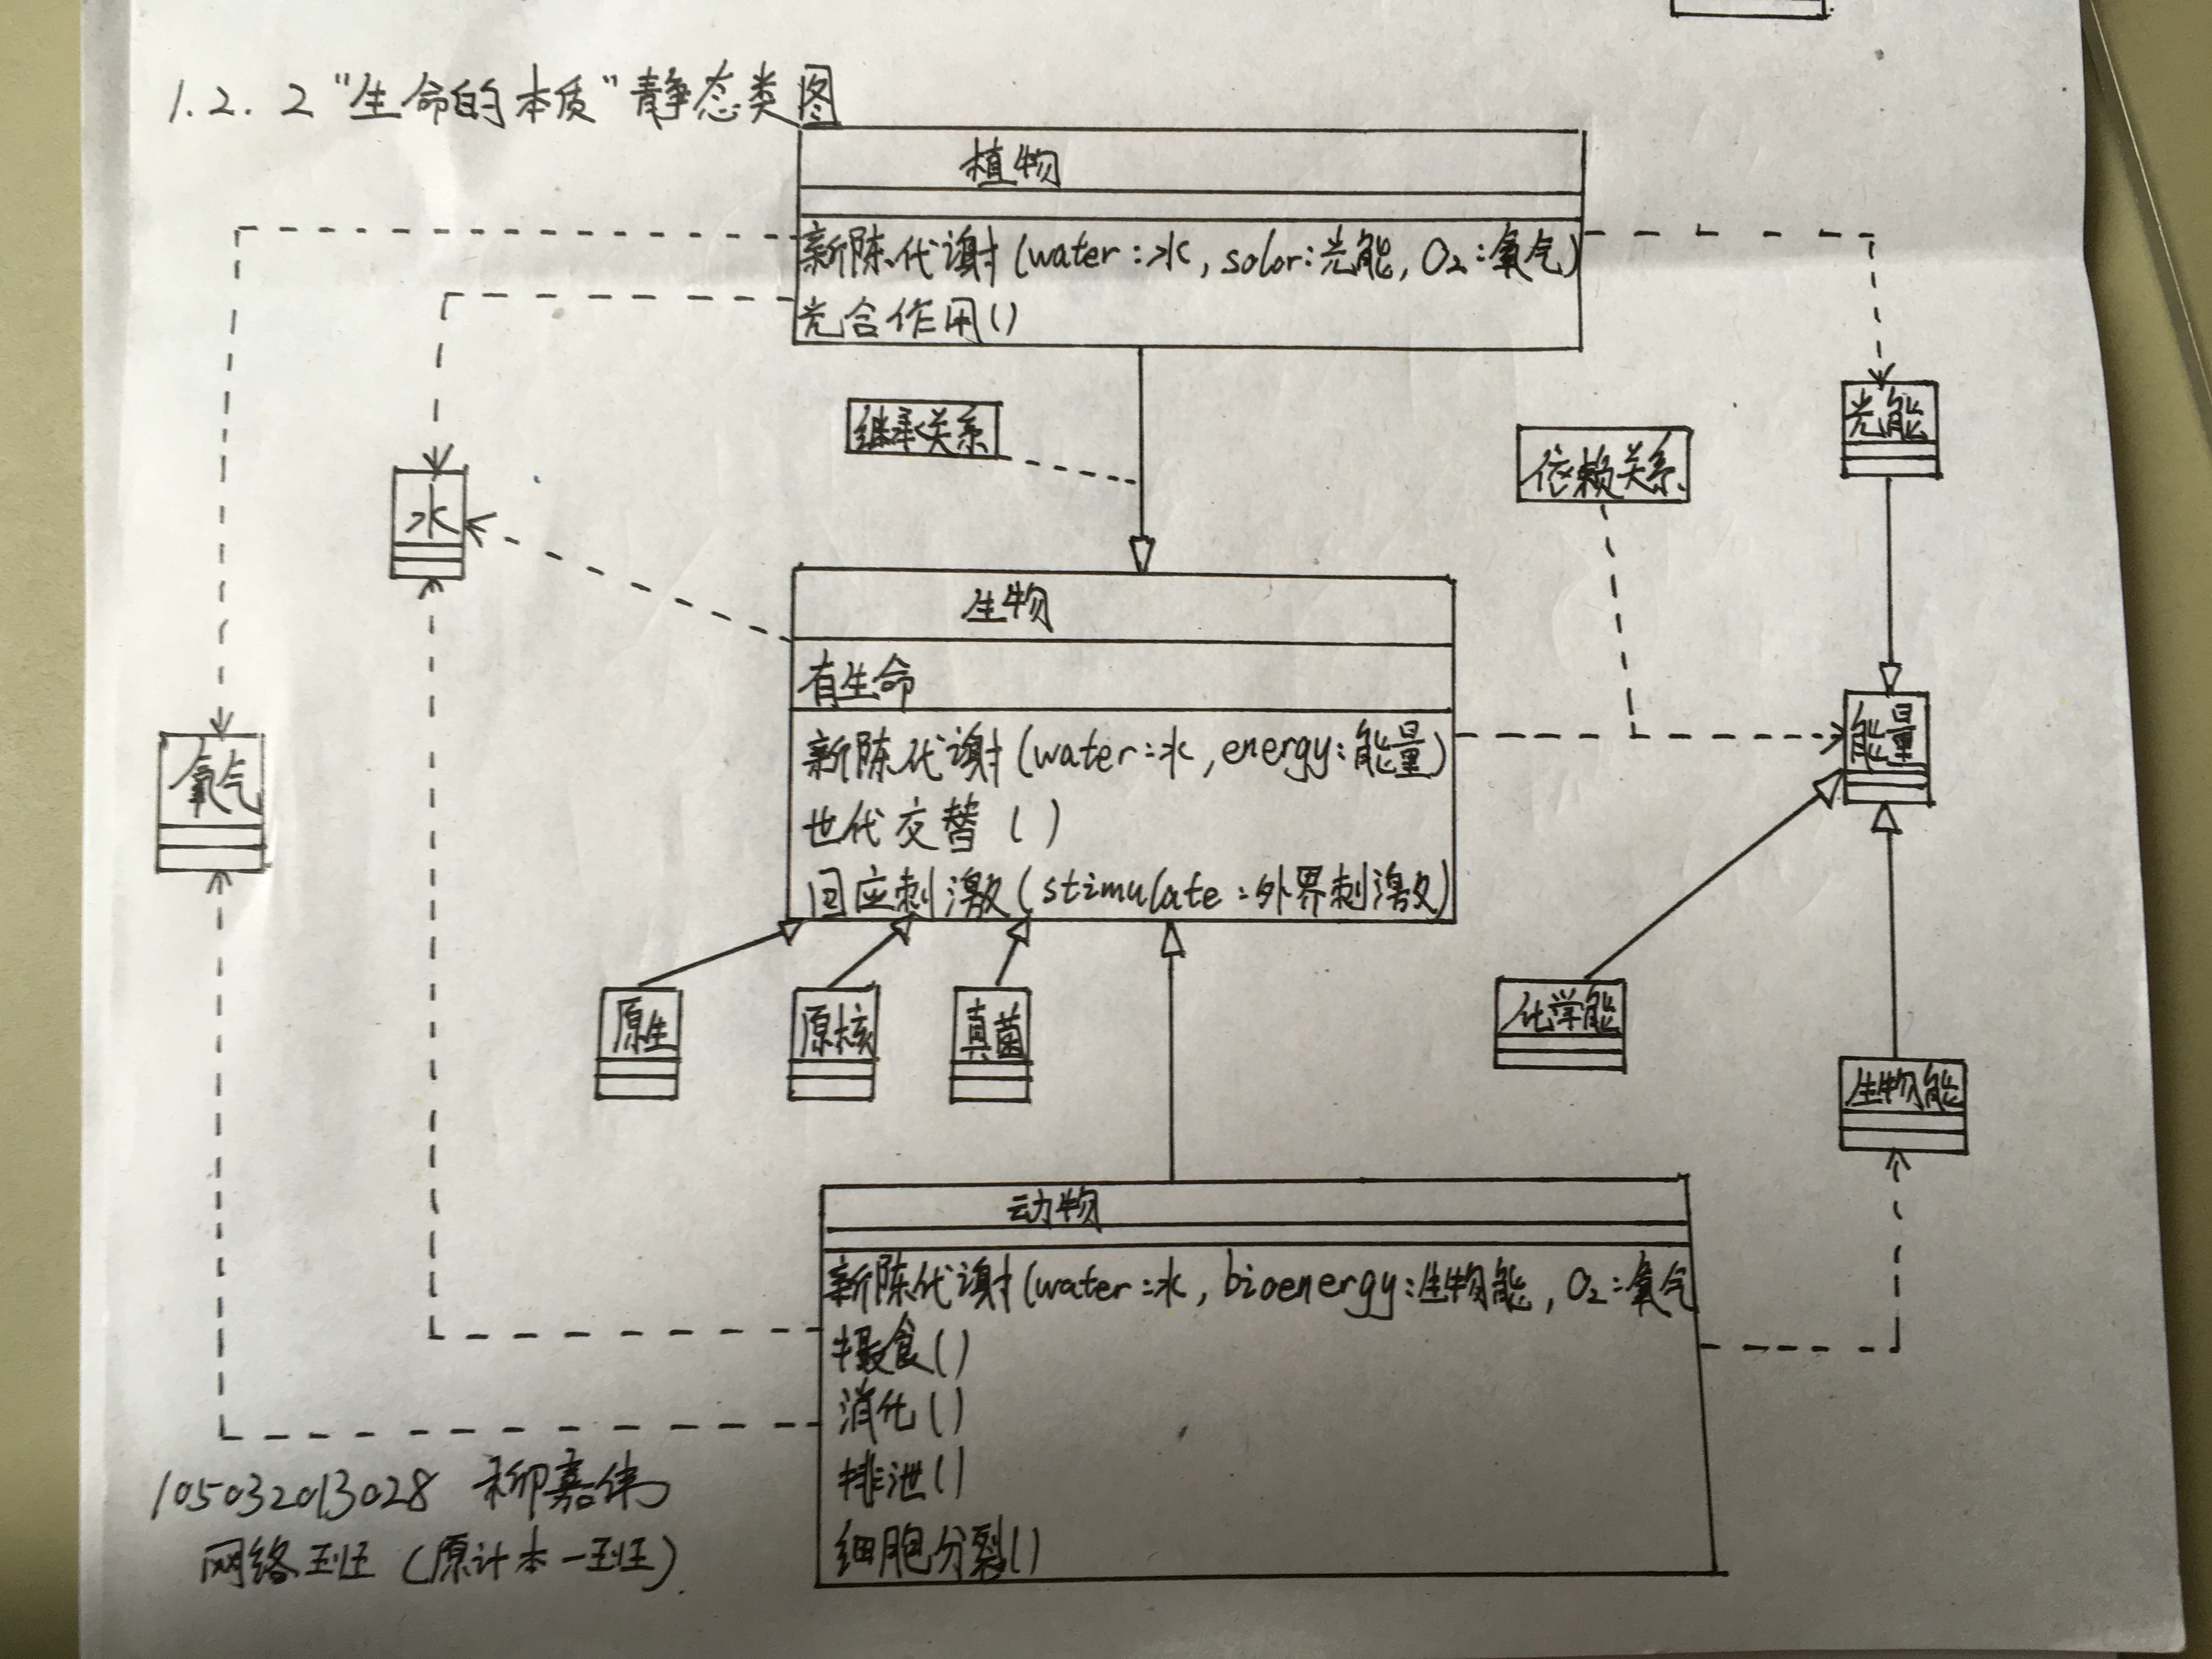 1.2.2 "生命的本质"静态类图
植物
新陈代谢(water:水, solor:光能, O₂:氧气)
光合作用()
继承关系
依赖关系
光能
水
生物
有生命
新陈代谢(water:水,energy:能量)
世代交替()
回应刺激(stimulate:外界刺激)
能量
氧气
原生
原核
真菌
化学能
生物能
动物
新陈代谢(water:水, bioenergy:生物能, O₂:氧气
摄食()
消化()
排泄()
细胞分裂()
105032013028 柳嘉伟
网络班(原计本一班)